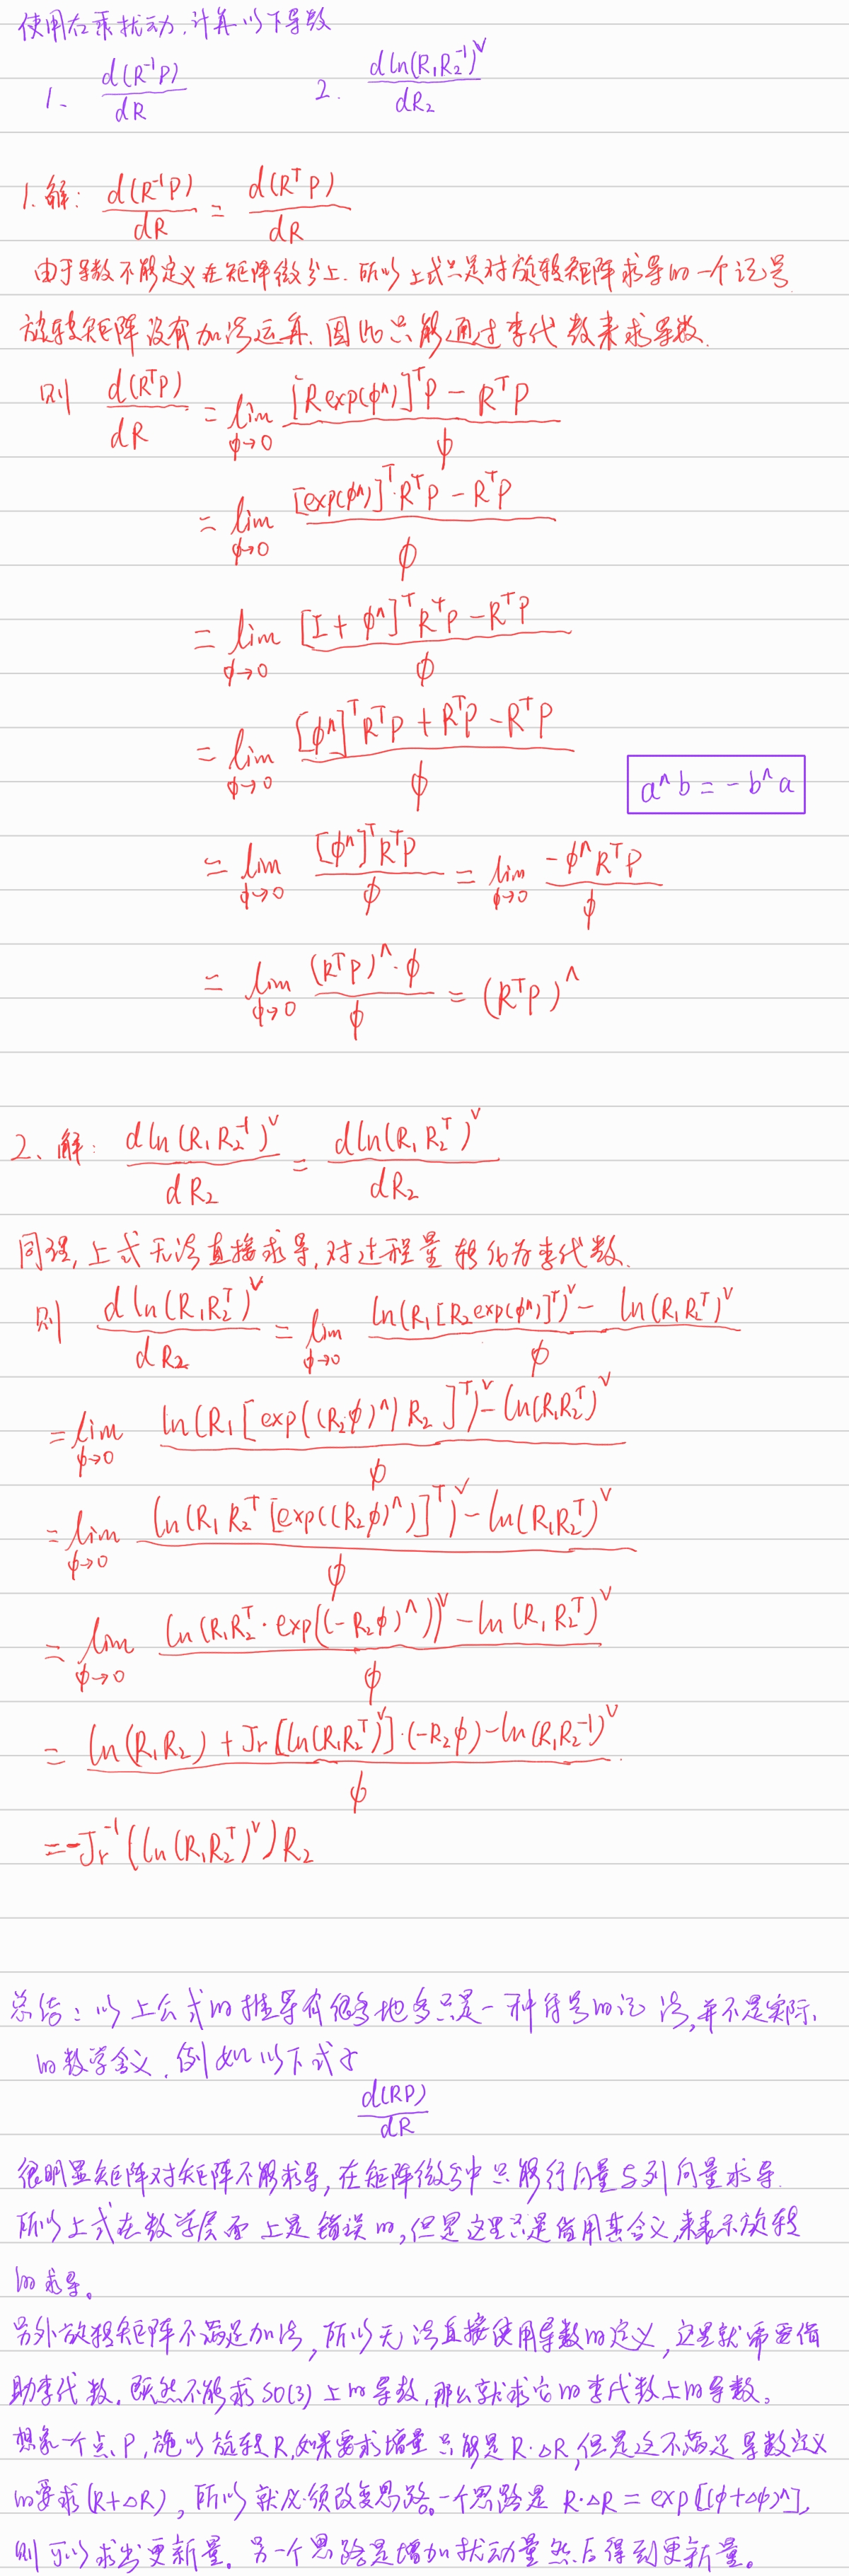 使用右乘扰动,计算以下导数
1、 d(R⁻¹P)/dR 2. d ln(R₁R₂⁻¹)^∨/dR₂
1.解: d(R⁻¹P)/dR = d(RᵀP)/dR
由于导数不能定义在矩阵微分上.所以上式只是对旋转矩阵求导的一个记号
旋转矩阵没有加法运算.因此只能通过李代数来求导数.
则 d(RᵀP)/dR = lim_{φ→0} ([R exp(φ^)]ᵀP − RᵀP)/φ
= lim_{φ→0} ([exp(φ^)]ᵀ·RᵀP − RᵀP)/φ
= lim_{φ→0} ([I + φ^]ᵀRᵀP − RᵀP)/φ
= lim_{φ→0} ([φ^]ᵀRᵀP + RᵀP − RᵀP)/φ
a^b = −b^a
= lim_{φ→0} [φ^]ᵀRᵀP/φ = lim_{φ→0} −φ^RᵀP/φ
= lim_{φ→0} (RᵀP)^·φ/φ = (RᵀP)^
2、解: d ln(R₁R₂⁻¹)^∨/dR₂ = d ln(R₁R₂ᵀ)^∨/dR₂
同理,上式无法直接求导,对过程量转化为李代数.
则 d ln(R₁R₂ᵀ)^∨/dR₂ = lim_{φ→0} (ln(R₁[R₂exp(φ^)]ᵀ)^∨ − ln(R₁R₂ᵀ)^∨)/φ
= lim_{φ→0} (ln(R₁[exp((R₂φ)^)R₂]ᵀ)^∨ − ln(R₁R₂ᵀ)^∨)/φ
= lim_{φ→0} (ln(R₁R₂ᵀ[exp((R₂φ)^)]ᵀ)^∨ − ln(R₁R₂ᵀ)^∨)/φ
= lim_{φ→0} (ln(R₁R₂ᵀ·exp((−R₂φ)^))^∨ − ln(R₁R₂ᵀ)^∨)/φ
= (ln(R₁R₂) + Jr[ln(R₁R₂ᵀ)^∨]·(−R₂φ) − ln(R₁R₂⁻¹)^∨)/φ
= −Jr⁻¹(ln(R₁R₂ᵀ)^∨)R₂
总结:以上公式的推导有很多地方只是一种符号的记法,并不是实际
的数学含义.例如以下式子
d(RP)/dR
很明显矩阵对矩阵不能求导,在矩阵微分中只能行向量与列向量求导.
所以上式在数学层面上是错误的,但是这里只是借用其含义,来表示旋转
的求导。
另外旋转矩阵不满足加法,所以无法直接使用导数的定义,这里就需要借
助李代数.既然不能求SO(3)上的导数,那么就求它的李代数上的导数。
想象一个点P,施以旋转R,如果要求增量只能是R·ΔR,但是这不满足导数定义
的要求(R+ΔR),所以就必须改变思路。一个思路是 R·ΔR = exp[(φ+Δφ)^],
则可以求出更新量。另一个思路是增加扰动量然后得到更新量。